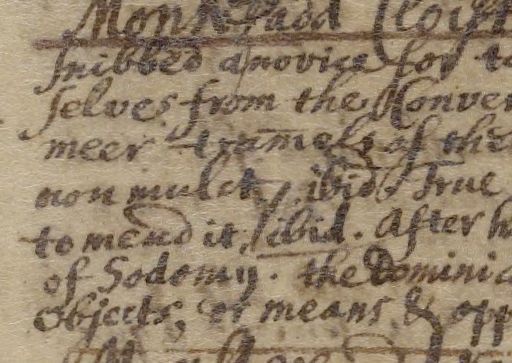 Monk, and Cloist
snibbed a novice for ta
selves from the Konven
meer tramels of the
non mulct, ibid. True
to mend it, ibid. After h
of Sodomy. the Dominic
objects, or means & opp